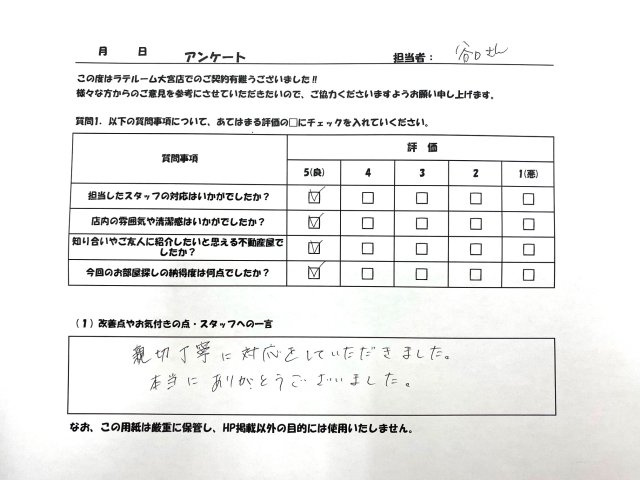 月 日 アンケート 担当者: 谷口さん
この度はラテルーム大宮店でのご契約有難うございました!!
様々な方からのご意見を参考にさせていただきたいので、ご協力くださいますようお願い申し上げます。
質問1. 以下の質問事項について、あてはまる評価の□にチェックを入れていください。
質問事項 評 価
5(良) 4 3 2 1(悪)
担当したスタッフの対応はいかがでしたか?
店内の雰囲気や清潔感はいかがでしたか?
知り合いやご友人に紹介したいと思える不動産屋で
したか?
今回のお部屋探しの納得度は何点でしたか?
(1)改善点やお気付きの点・スタッフへの一言
親切丁寧に対応をしていただきました。
本当にありがとうございました。
なお、この用紙は厳重に保管し、HP掲載以外の目的には使用いたしません。